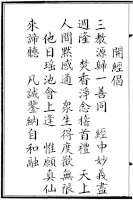 開經偈
三教源歸一善同　經中妙義盡
週隆　焚香淨念稽首禮　天上
人間黙感通　衆生得度歡無限
他日瑤池會上逢　惟願真仙
來諦聽　凡誠鑒納自和融